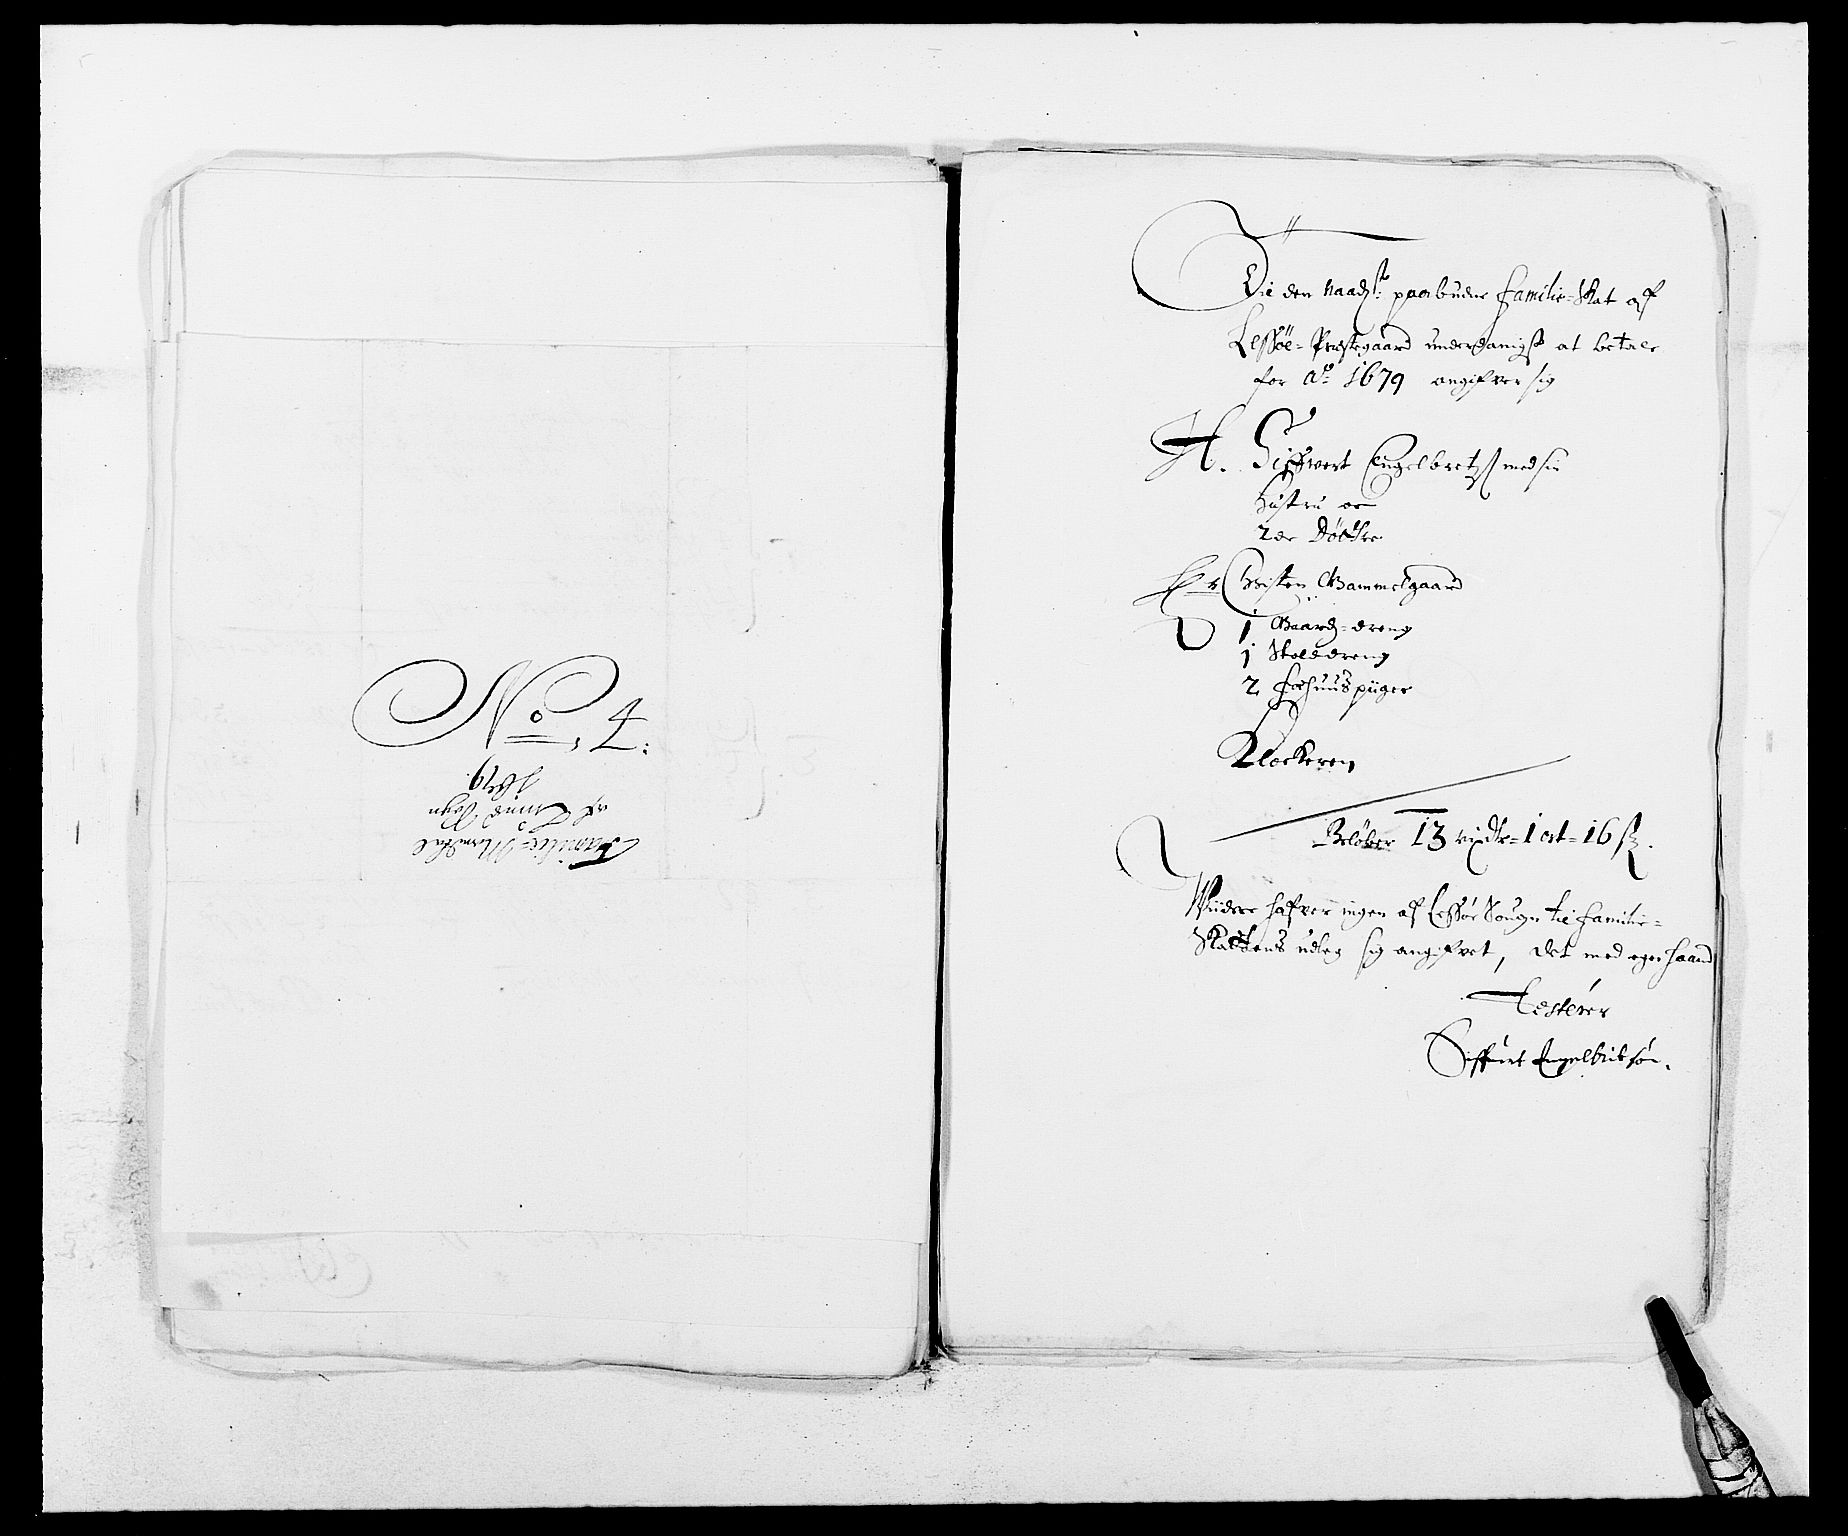 No. 4:
Familie-Mandtal
af Lund Sogn
1679
Til den naadst: paabudne familie-Skat af
Lessøe-Præstegaard underdanigst at betale
for Ao 1679 angifver sig
H. Siffwert Engelbretß med sin
Hustru oc
2de Døttre
Hr Christen Gammelgaard
1 Gaardz-dreng
1 Skoledreng
2 forhuuspiiger
Klockeren
Beløber 13 rixdr-1 ort-16 ß.
Widere hafver ingen af Lessøe Sougn til familie-
Skattens udleg sig angifvet, det med egen haand
Testerer
Siffuert Engelbritsøn.